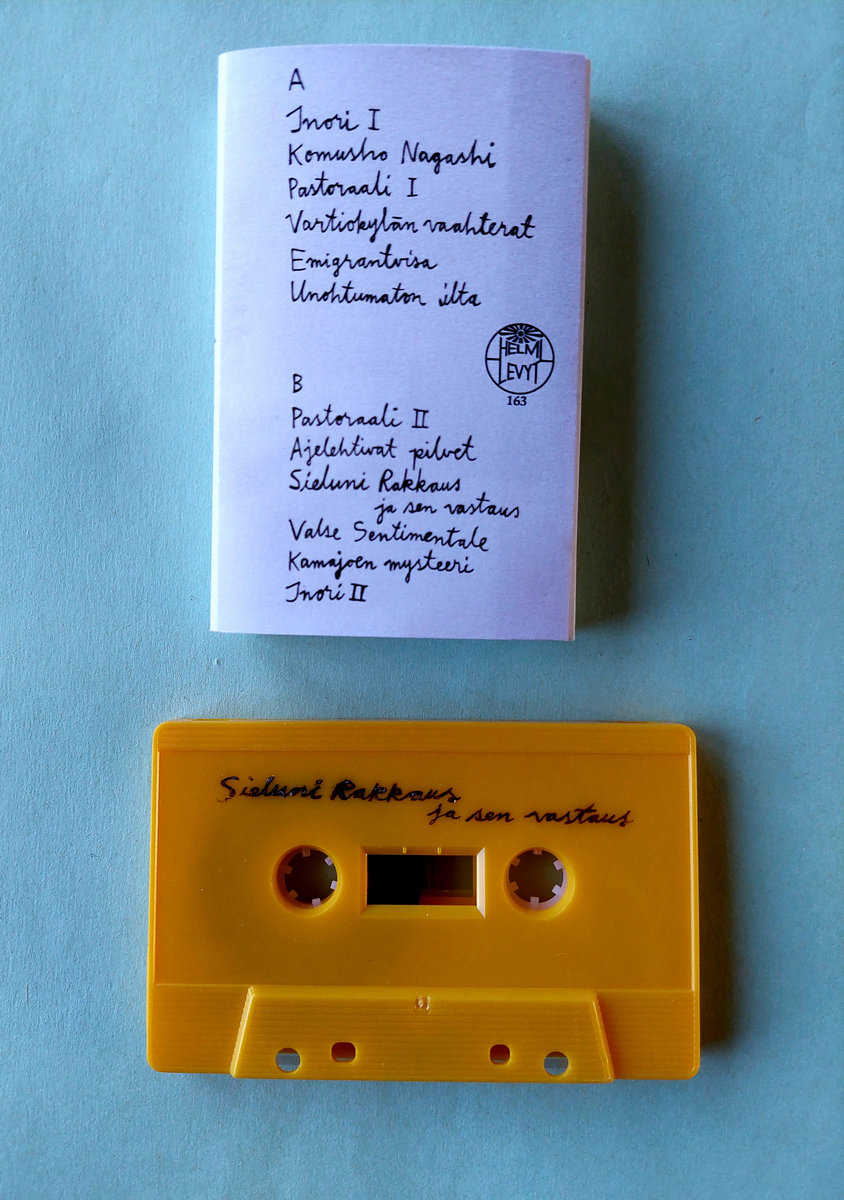 A
Inori I
Komusho Nagashi
Pastoraali I
Vartiokylän vaahterat
Emigrantvisa
Unohtumaton ilta
HELMI
LEVYT
163
B
Pastoraali II
Ajelehtivat pilvet
Sieluni Rakkaus
ja sen vastaus
Valse Sentimentale
Kamajoen mysteeri
Inori II
Sieluni Rakkaus
ja sen vastaus